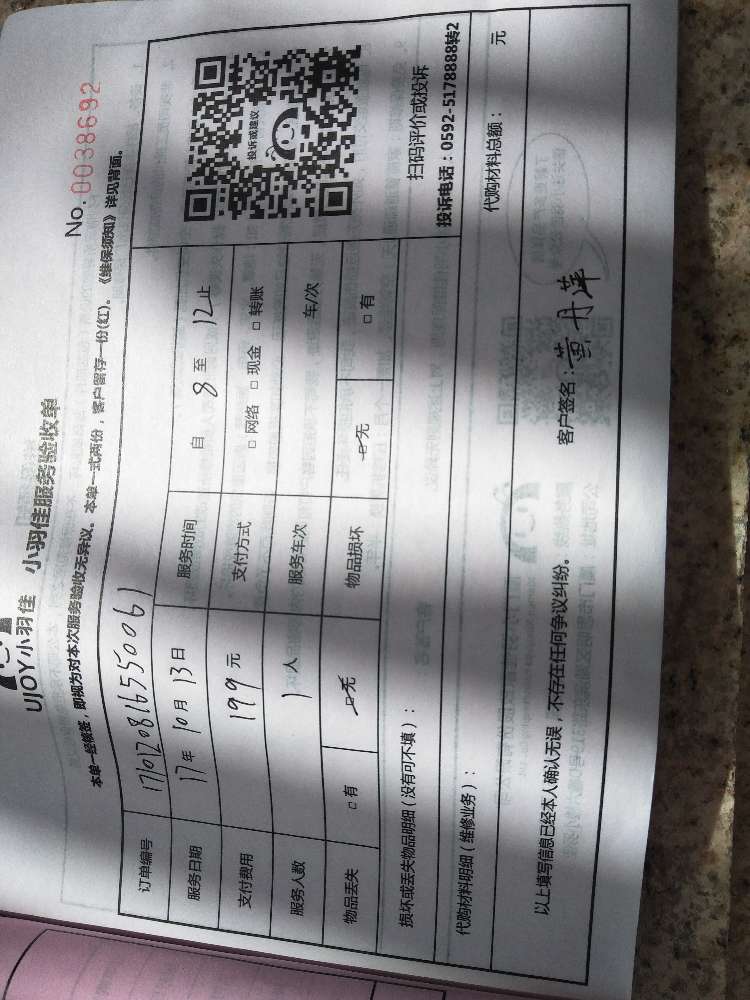 UJOY小羽佳 小羽佳服务验收单
No. 0038692
本单一经核签，即视为对本次服务验收无异议。本单一式两份，客户留存一份(红)。《维保须知》详见背面。
订单编号
服务日期 17年 10月 13日 服务时间 自 8 至 12止
支付费用 199元 支付方式 □网络 □现金 □转账
服务人数 1人 服务车次 车/次
物品丢失 □有 □无 物品损坏 □无 □有
投诉或建议
扫码评价或投诉
投诉电话：0592-5178888转2
损坏或丢失物品明细（没有可不填）：
代购材料明细（维修业务）： 代购材料总额： 元
以上填写信息已经本人确认无误，不存在任何争议纠纷。 客户签名：黄丹萍